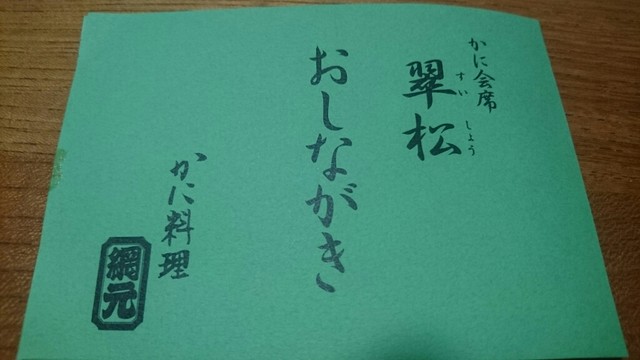 かに会席
翠松
すいしょう
おしながき
かに料理
網元